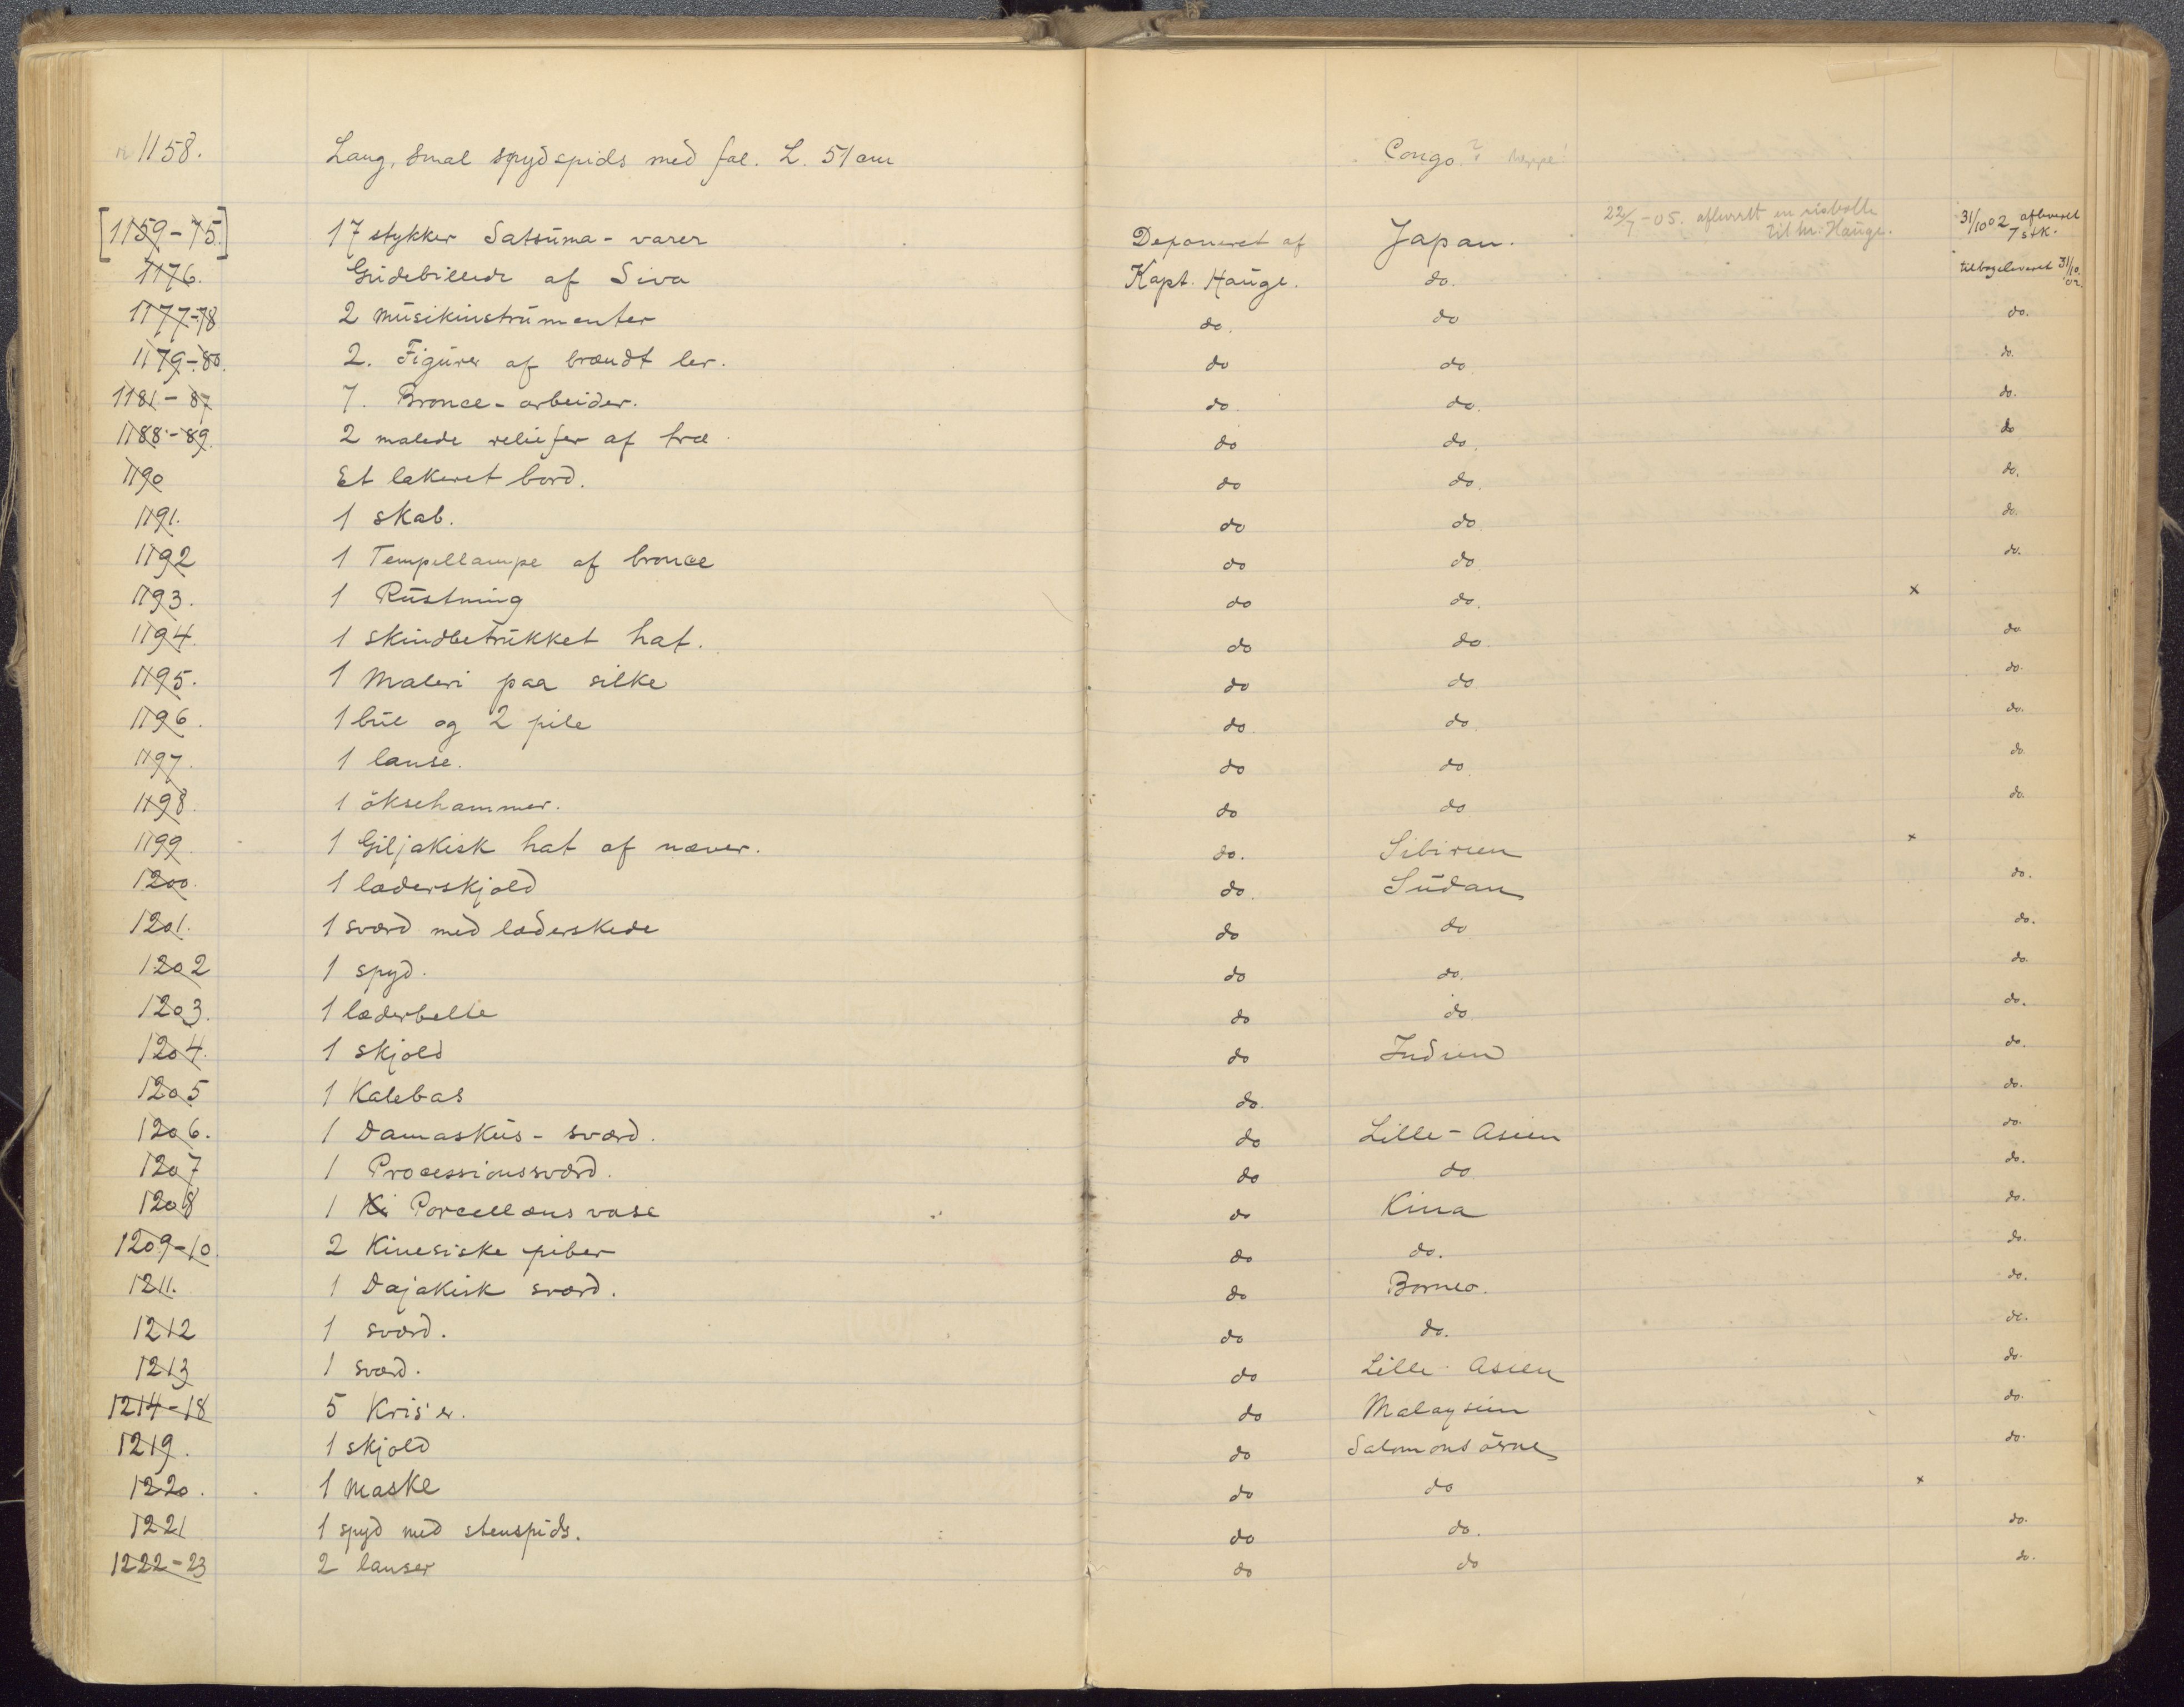 1158. Lang, smal spydspids med fal. L. 51 cm Congo? neppe!
[1159-75.] 17 stykker Satsuma-varer Deponeret af Japan. 22/7-05. afleveret en risbolle til hr. Hauge. 31/10 02 afleveret 7 stk.
1176. Gudebillede af Siva Kapt. Hauge. do. tilbageleveret 31/10 02.
1177-78 2 musikinstrumenter do. do do.
1179-80. 2. Figurer af brændt ler. do do do.
1181-87 7. Bronce-arbeider. do. do. do.
1188-89. 2 malede reliefer af træ. do do. do
1190 Et lakeret bord. do do. do.
1191. 1 skab. do do. do.
1192 1 Tempellampe af bronce do do do.
1193. 1 Rustning do do. x
1194. 1 skindbetrukket hat. do do. do.
1195. 1 Maleri paa silke do do do.
1196. 1 bue og 2 pile do do. do.
1197. 1 lanse. do do. do.
1198. 1 öksehammer. do do do.
1199. 1 Giljakisk hat af næver. do. Sibirien x
1200. 1 læderskjold do. Sudan do.
1201. 1 sværd med læderskede do do do.
1202 1 spyd. do do. do.
1203. 1 læderbelte do do. do.
1204. 1 skjold do Indien do.
1205 1 Kalebas do. do.
1206. 1 Damaskus-sværd. do Lille-Asien do.
1207 1 Processionssværd. do do. do.
1208 1 Ki Porcellænsvase do Kina do.
1209-10. 2 Kinesiske piber do do. do.
1211. 1 Dajakisk sværd. do Borneo. do.
1212 1 sværd. do do. do.
1213 1 sværd. do Lille-Asien do.
1214-18 5 Kris'er. do Malaysien do.
1219. 1 skjold do Salomonsörne do.
1220. 1 Maske do do x
1221 1 spyd med stenspids. do do. do.
1222-23 2 lanser do do do.